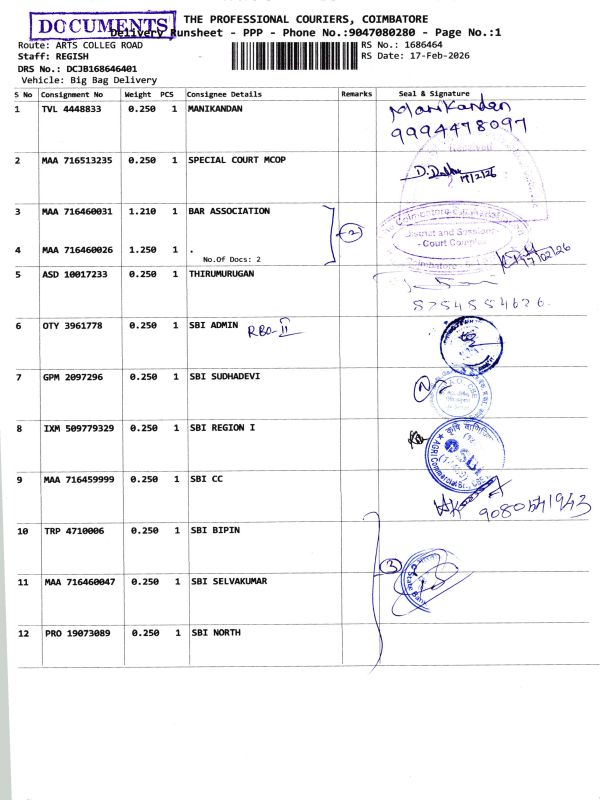 DOCUMENTS
THE PROFESSIONAL COURIERS, COIMBATORE
Delivery Runsheet - PPP - Phone No.:9047080280 - Page No.:1
Route: ARTS COLLEG ROAD
RS No.: 1686464
Staff: REGISH
RS Date: 17-Feb-2026
DRS No.: DCJB168646401
Vehicle: Big Bag Delivery
S No Consignment No Weight PCS Consignee Details Remarks Seal & Signature
1 TVL 4448833 0.250 1 MANIKANDAN Manikandan
9994478097
Received
2 MAA 716513235 0.250 1 SPECIAL COURT MCOP
17/2/26
3 MAA 716460031 1.210 1 BAR ASSOCIATION
2
District and Sessions
- Court Complex
4 MAA 716460026 1.250 1 .
No.Of Docs: 2
17/02/26
5 ASD 10017233 0.250 1 THIRUMURUGAN
8754554626
6 OTY 3961778 0.250 1 SBI ADMIN RBO-II
7 GPM 2097296 0.250 1 SBI SUDHADEVI
8 IXM 509779329 0.250 1 SBI REGION I
9 MAA 716459999 0.250 1 SBI CC
10 TRP 4710006 0.250 1 SBI BIPIN
3
11 MAA 716460047 0.250 1 SBI SELVAKUMAR
12 PRO 19073089 0.250 1 SBI NORTH